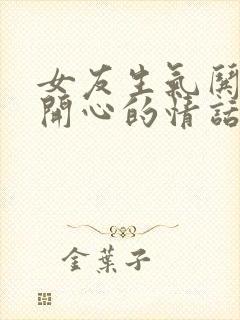 女友生氣關
開心的情話
金葉子